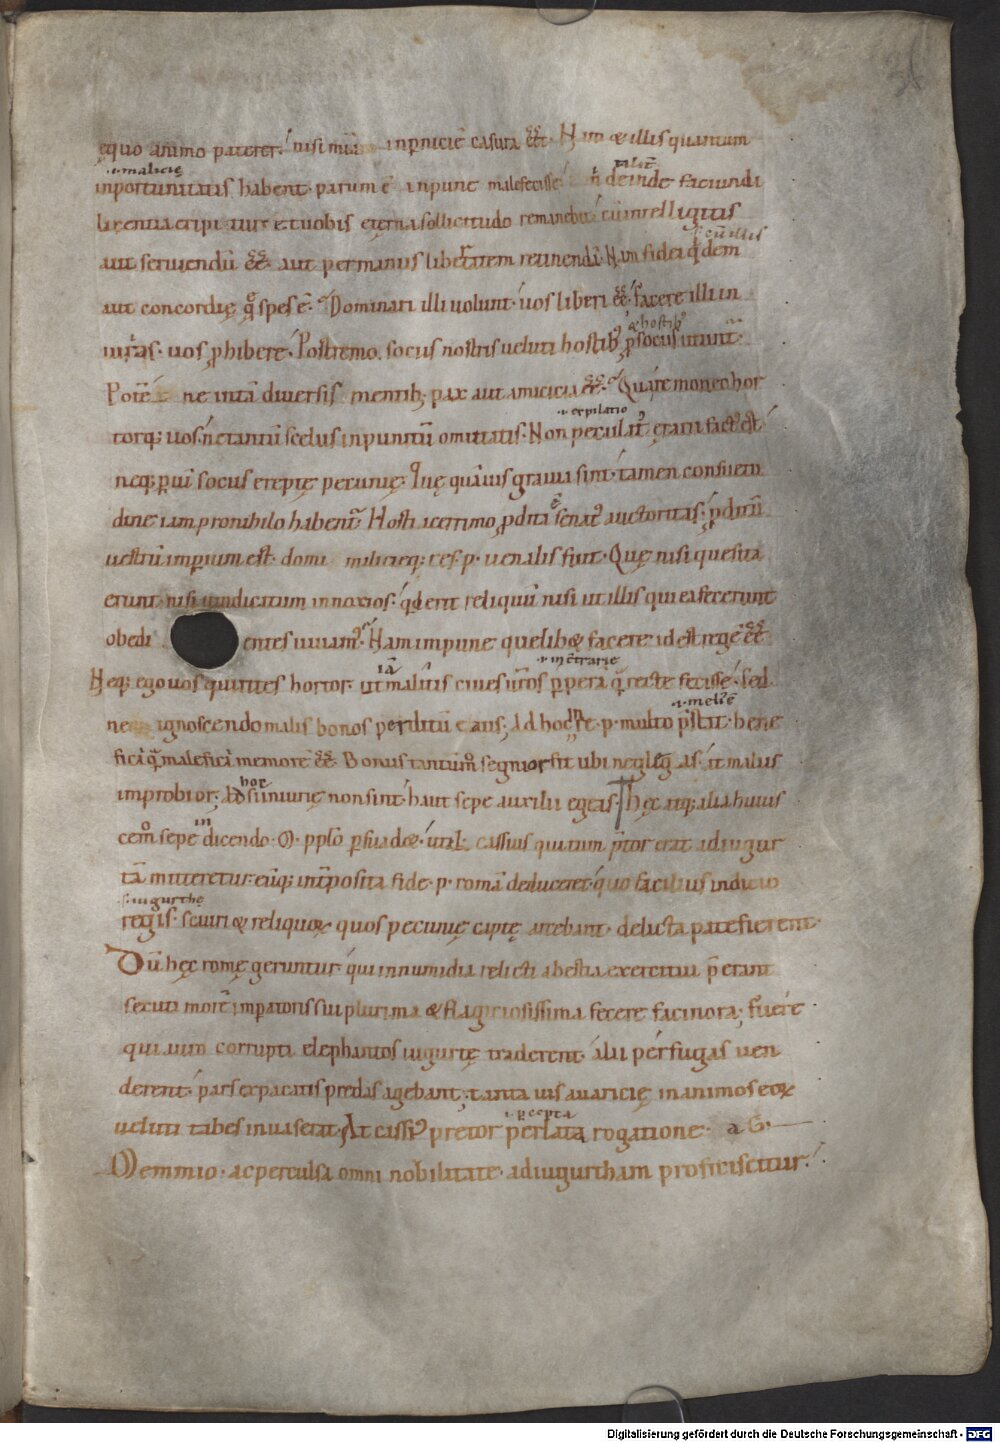 ęquo animo paterer nisi mia inpniciē casura eēt. Nam & illis quantum
.i. malicię
inportunitatis habent. parum ē inpune malefecisse. n deinde faciundi
licentia eripi&ur et uobis ęterna sollicitudo remanebit cū intelligitis
s. cū illis
aut seruiendū eē. aut per manus libertatem retinendā. Nam fidei qdem
aut concordię q spes ē. Dominari illi uolunt. uos liberi eē. facere illi in
& hostib;
iurias. uos phibere. Postremo. sociis nostris ueluti hostib; p sociis utunt.
Potē ne in tā diuersis mentib; pax aut amicicia eē. Quare moneo hor
.i. expilatio
torq; uos. ne tantū scelus inpunitū omittatis. Non peculat; ęrarii fact; est
neq; p uim sociis ereptę pecunię. Quę quāuis grauia sint. tamen consuetu
dine iam pro nihilo habent. Hosti acerrimo pdita eē senat; auctoritas. pditū
uestrū imperium est. domi militięq; res. p. uenalis fuit. Quę nisi quesita
erunt. nisi uindicatum in noxios. qd erit reliquū nisi ut illis qui ea fecerunt
obedi entes uiuam;. Nam impune quelib& facere id est regē eē
.i. incōtrarię
Neq; ego uos quirites hortor. ut iā malitis ciues uros pperā q recte fecisse. sed
.i. meli; ē
ne ignoscendo malis bonos perditū eatis. Ad hoc re. p. multo pstat. bene
ficii q maleficii memorē eē. Bonus tantum segnior fit ubi neglegas. at malus
hor
improbior. Ad si iniurię non sint. haut sepe auxilii egeas. Hęc atq; alia huius
in
cemo sepe dicendo. M. pplo psuad&. uti. L. cassius qui tum ptor erat ad iugur
tā mitteretur. eūq; intposita fide. p. romā deduceret. quo facilius indicio
s. iugurthę
regis. scauri & reliquorum quos pecunię captę arcebant. delicta patefierent.
Dū hęc romę geruntur. qui in numidia relicti a bestia exercitui perant
secuti morē imperatoris sui plurima & flagiciosissima fecere facinora; fuere
qui auro corrupti elephantos iugurtę traderent. alii perfugas uen
derent. pars ex pacatis predas agebant; tanta uis auaricię in animos eorum
.i. pcepta
ueluti tabes inuaserat. At cassi; pretor perlata rogatione. a. G.
Memmio. ac perculsa omni nobilitate. ad iugurtham proficiscitur.
Digitalisierung gefördert durch die Deutsche Forschungsgemeinschaft - DFG